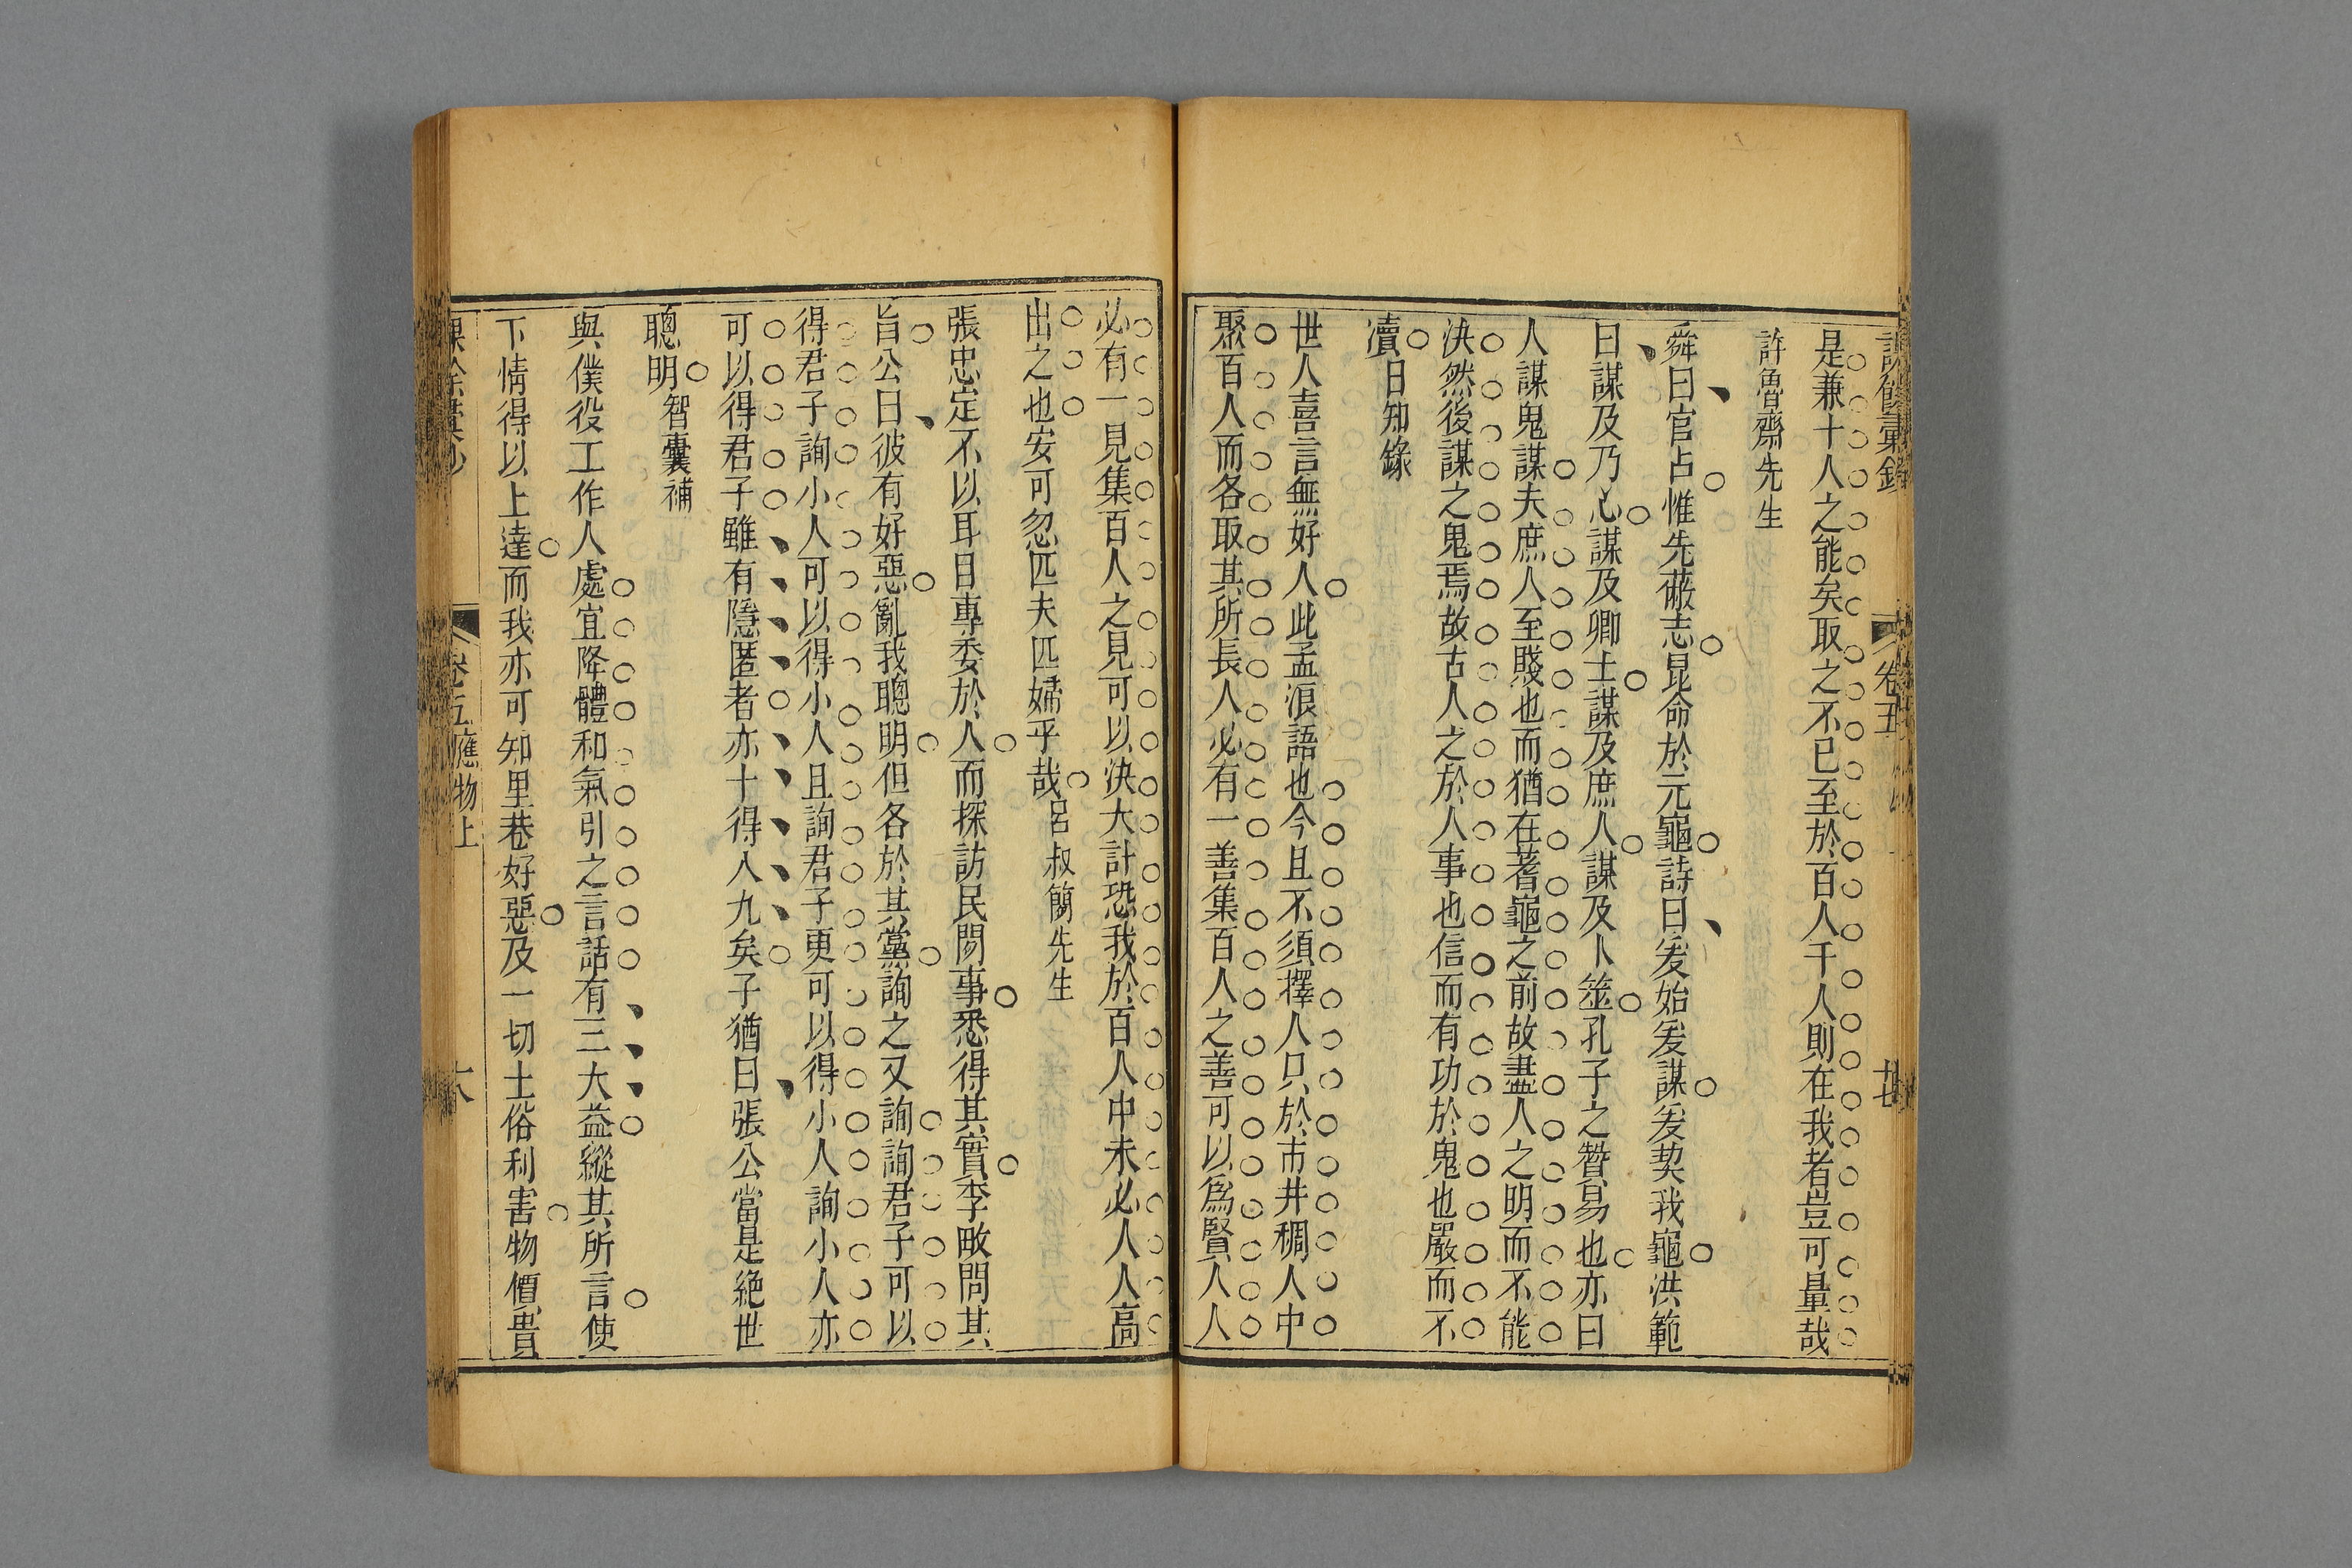 卷五
是兼十人之能矣取之不已至於百人千人則在我者豈可量哉
許魯齋先生
舜曰官占惟先蔽志昆命於元龜詩曰爰始爰謀爰契我龜洪範
曰謀及乃心謀及卿士謀及庶人謀及卜筮孔子之贊易也亦曰
人謀鬼謀夫庶人至賤也而猶在蓍龜之前故盡人之明而不能
決然後謀之鬼焉故古人之於人事也信而有功於鬼也嚴而不
瀆日知錄
世人喜言無好人此孟浪語也今且不須擇人只於市井稠人中
聚百人而各取其所長人必有一善集百人之善可以爲賢人人
必有一見集百人之見可以決大計恐我於百人中未必人人高
出之也安可忽匹夫匹婦乎哉呂叔簡先生
張忠定不以耳目專委於人而探訪民間事悉得其實李畋問其
旨公曰彼有好惡亂我聰明但各於其黨詢之又詢詢君子可以
得君子詢小人可以得小人且詢君子更可以得小人詢小人亦
可以得君子雖有隱匿者亦十得八九矣子猶曰張公當是絕世
聰明智囊補
與僕役工作人處宜降體和氣引之言話有三大益縱其所言使
下情得以上達而我亦可知里巷好惡及一切土俗利害物價貴
卷五應物上